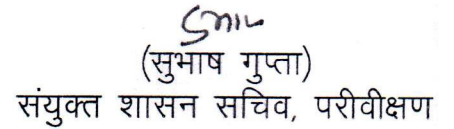 (सुभाष गुप्ता)
संयुक्त शासन सचिव, परीवीक्षण